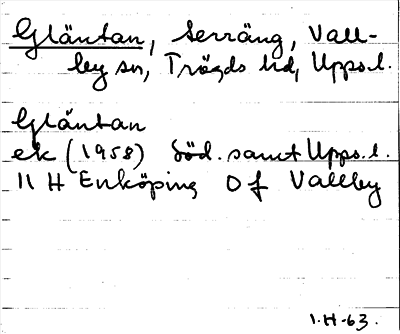 Gläntan, terräng, Vall-
by sn, Trögds hd, Upps.l.
Gläntan
ek (1958) Söd. samt Upps. l.
11 H Enköping 0 f Vallby
1.H-63.